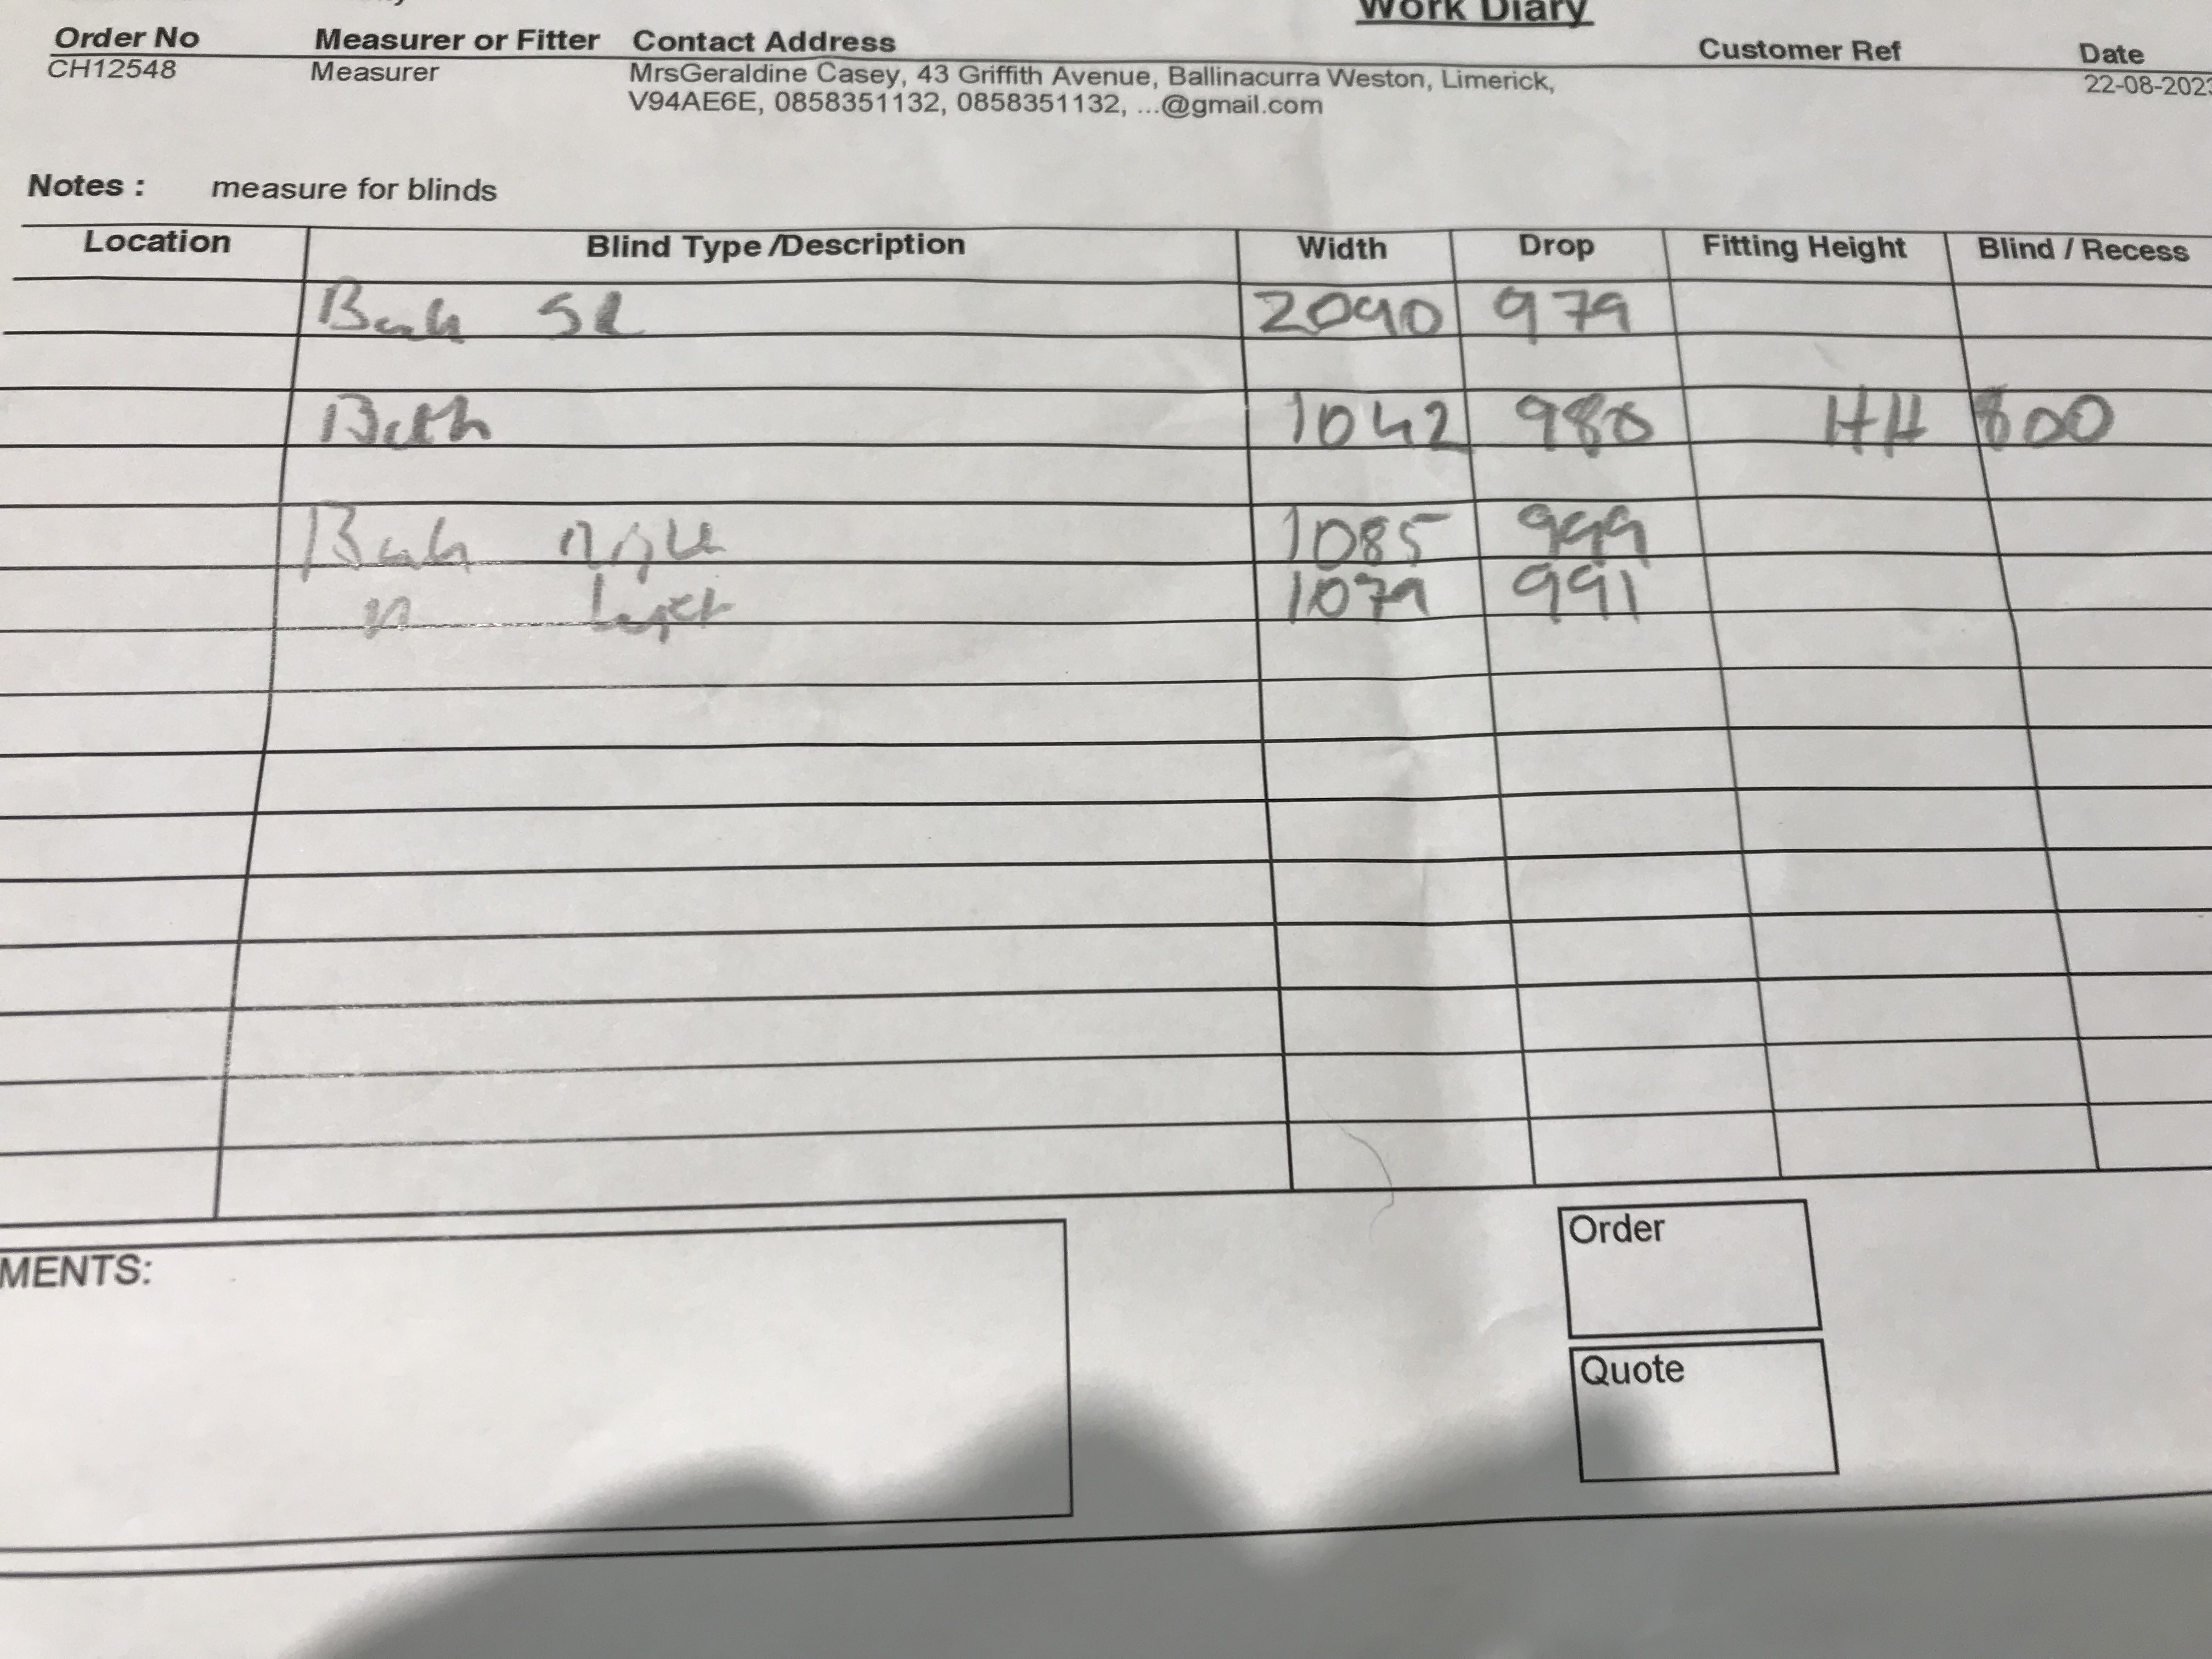 Work Diary
Order No Measurer or Fitter Contact Address Customer Ref Date
CH12548 Measurer MrsGeraldine Casey, 43 Griffith Avenue, Ballinacurra Weston, Limerick, 22-08-2023
V94AE6E, 0858351132, 0858351132, ...@gmail.com
Notes : measure for blinds
Location Blind Type /Description Width Drop Fitting Height Blind / Recess
2090 979
Bath 1042 980 HH 800
1085 999
1079 991
MENTS:
Order
Quote